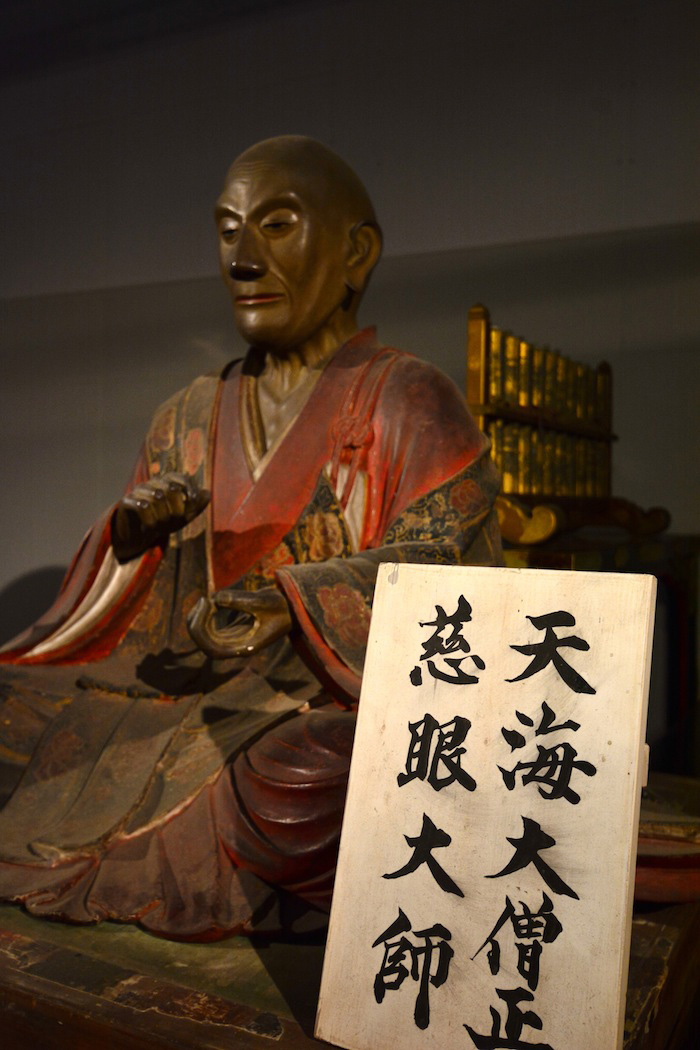 天海大僧正
慈眼大師